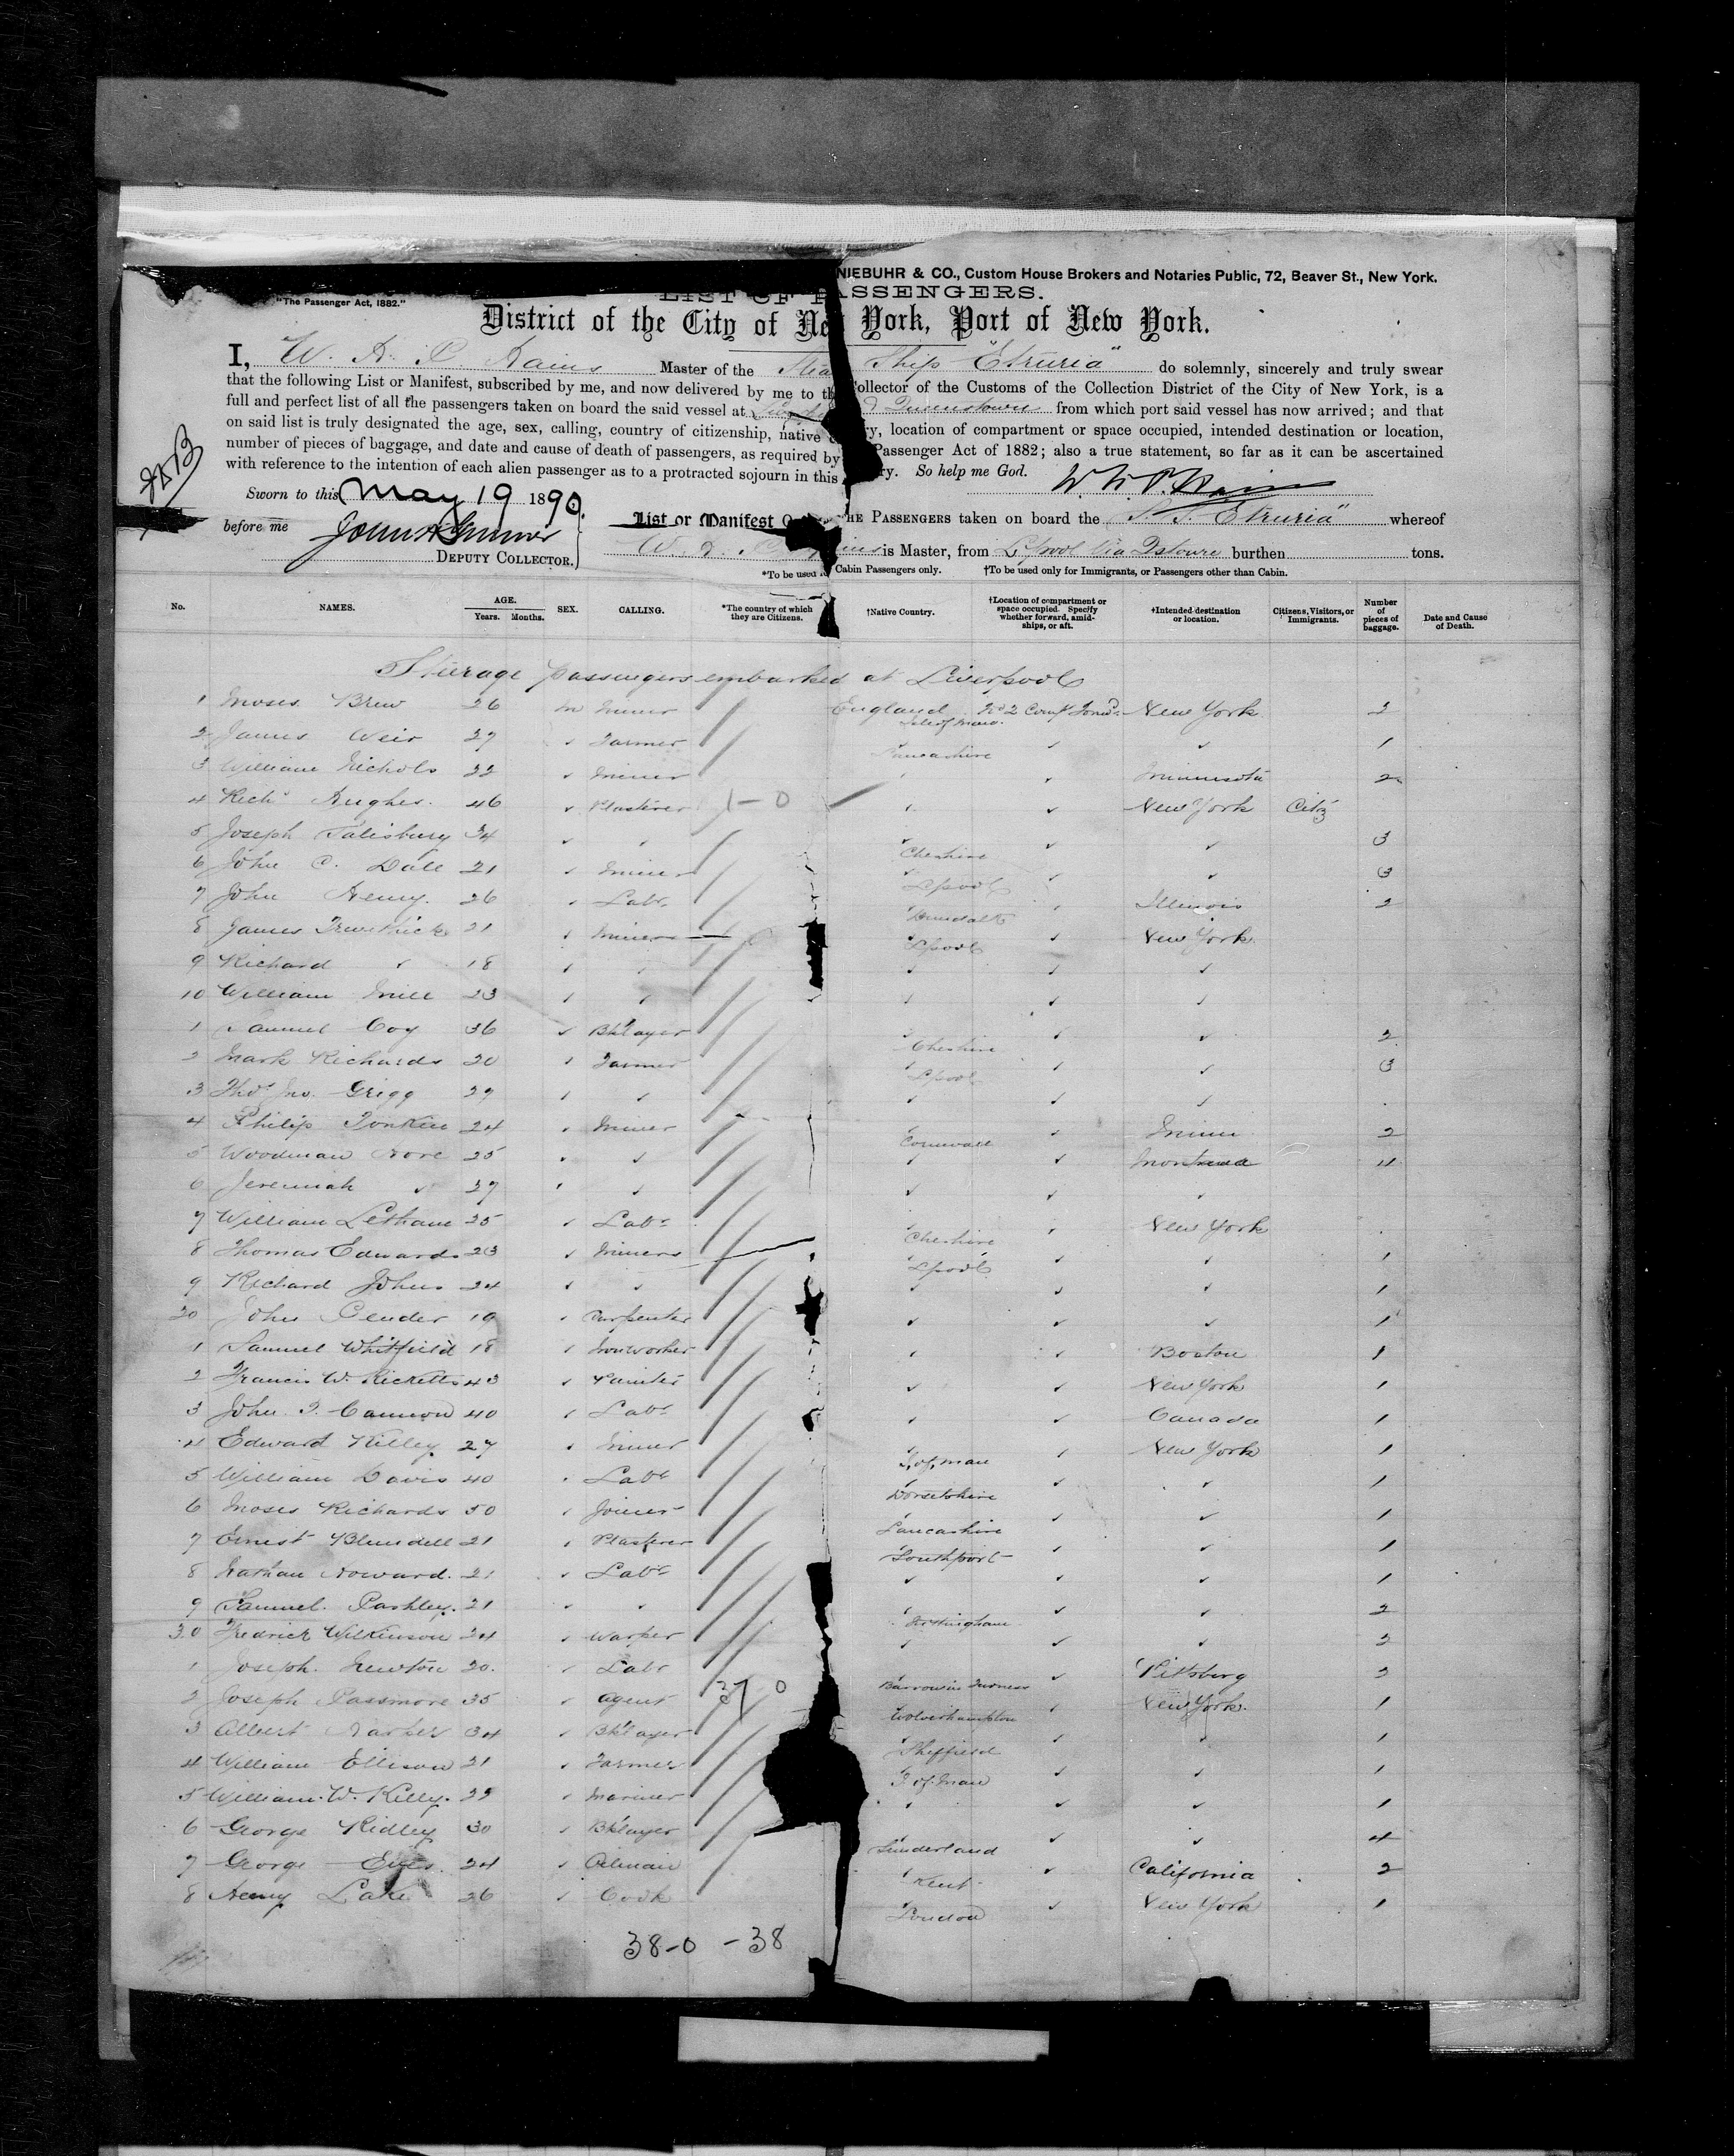 NIEBUHR & CO., Custom House Brokers and Notaries Public, 72, Beaver St., New York.
"The Passenger Act, 1882."
LIST OF PASSENGERS.
District of the City of New York, Port of New York.
I, W. H. P. Hains Master of the Steam Ship "Etruria" do solemnly, sincerely and truly swear
that the following List or Manifest, subscribed by me, and now delivered by me to the Collector of the Customs of the Collection District of the City of New York, is a
full and perfect list of all the passengers taken on board the said vessel at Queenstown from which port said vessel has now arrived; and that
on said list is truly designated the age, sex, calling, country of citizenship, native country, location of compartment or space occupied, intended destination or location,
number of pieces of baggage, and date and cause of death of passengers, as required by Passenger Act of 1882; also a true statement, so far as it can be ascertained
with reference to the intention of each alien passenger as to a protracted sojourn in this country. So help me God. W. H. P. Hains
Sworn to this May 19 1890.
before me
DEPUTY COLLECTOR.
List or Manifest OF THE PASSENGERS taken on board the S. S. "Etruria" whereof
W. H. P. Hains is Master, from L'pool via Qstown burthen tons.
*To be used for Cabin Passengers only. †To be used only for Immigrants, or Passengers other than Cabin.
No. NAMES. AGE. Years. Months. SEX. CALLING. *The country of which they are Citizens. †Native Country. †Location of compartment or space occupied. Specify whether forward, amidships, or aft. †Intended destination or location. Citizens, Visitors, or Immigrants. Number of pieces of baggage. Date and Cause of Death.
Steerage passengers embarked at Liverpool
1 Moses Brew 26 m Miner England Isle of Man No 2 Compt Forwd New York 2
2 James Weir 27 " Farmer " Lancashire " " 1
3 William Nichols 22 " Miner " " Minnesota 2
4 Richd Hughes 46 " Plasterer 1-0 " " New York Citz
5 Joseph Salisbury 34 " " " Cheshire " " 3
6 John C. Dale 21 " Miner " L'pool " " 3
7 John Henry 26 " Labr " Dundalk " Illinois 2
8 James Trewthick 21 " Miners " L'pool " New York
9 Richard " 18 " " " " "
10 William Mill 23 " " " " "
1 Samuel Coy 36 " Bklayer " Cheshire " " 2
2 Mark Richards 20 " Farmer " L'pool " " 3
3 Thos Jno. Grigg 29 " " " " "
4 Philip Tonkin 24 " Miner " Cornwall " Minn 2
5 Woodman 25 " " " " Montana 4
6 Jeremiah " 27 " " " " "
7 William Letham 25 " Labr " Cheshire " New York
8 Thomas Edwards 23 " Miners " L'pool " " 1
9 Richard Johns 24 " " " " " 1
20 John Pender 19 " Carpenter " " " 1
1 Samuel Whitfield 18 " Ironworker " " Boston 1
2 Francis W. Ricketts 43 " Painter " " New York 1
3 John T. Cannon 40 " Labr " " Canada 1
4 Edward Killey 27 " Miner " I. of Man " New York 1
5 William Davis 40 " Labr " Dorsetshire " " 1
6 Moses Richards 50 " Joiner " Lancashire " " 1
7 Ernest Blundell 21 " Plasterer " Southport " " 1
8 Nathan Howard 21 " Labr " " " 1
9 Samuel Pashley 21 " " " Nottingham " " 2
30 Fredrick Wilkinson 24 " Warper " " " 2
1 Joseph Newton 20 " Labr Barrow in Furness " Pittsburg 2
2 Joseph Passmore 35 " Agent 37 0 " Wolverhampton " New York 1
3 Albert 34 " Bklayer " Sheffield " " 1
4 William Ellison 21 " Farmer " I. of Man " " 1
5 William W. Killy 22 " Mariner " " " 1
6 George Ridley 30 " Bklayer " Sunderland " " 4
7 George 24 " Oilman " Kent " California 2
8 Henry Lake 26 " Cook " London " New York 1
38-0 -38